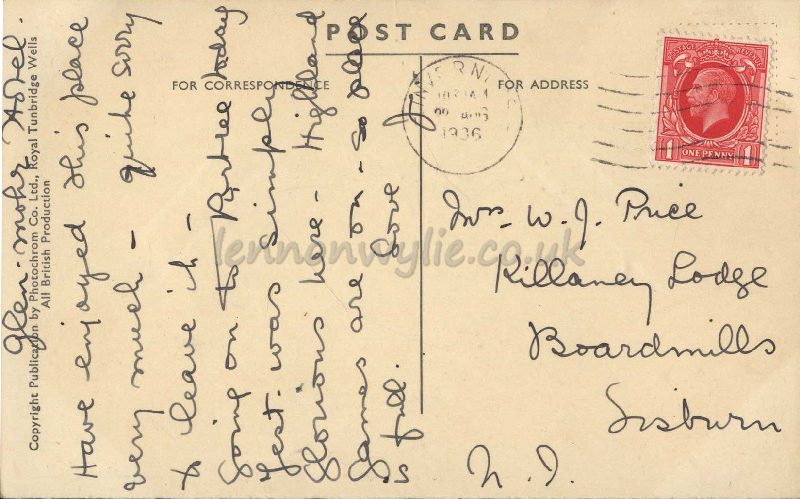 POST CARD
FOR CORRESPONDENCE
FOR ADDRESS
Copyright Publication by Photochrom Co. Ltd., Royal Tunbridge Wells
All British Production
Glen-Mohr Hotel.
Have enjoyed this place
very much - quite sorry
to leave it -
Going on to today
Yest. was simply
Glorious here - Highland
Games are on - so place
is full. Love J.
INVERNESS
1936
POSTAGE REVENUE
1 ONE PENNY 1
Mrs. W. J. Price
Killaney Lodge
Boardmills
Lisburn
N. I.
lennonwylie.co.uk